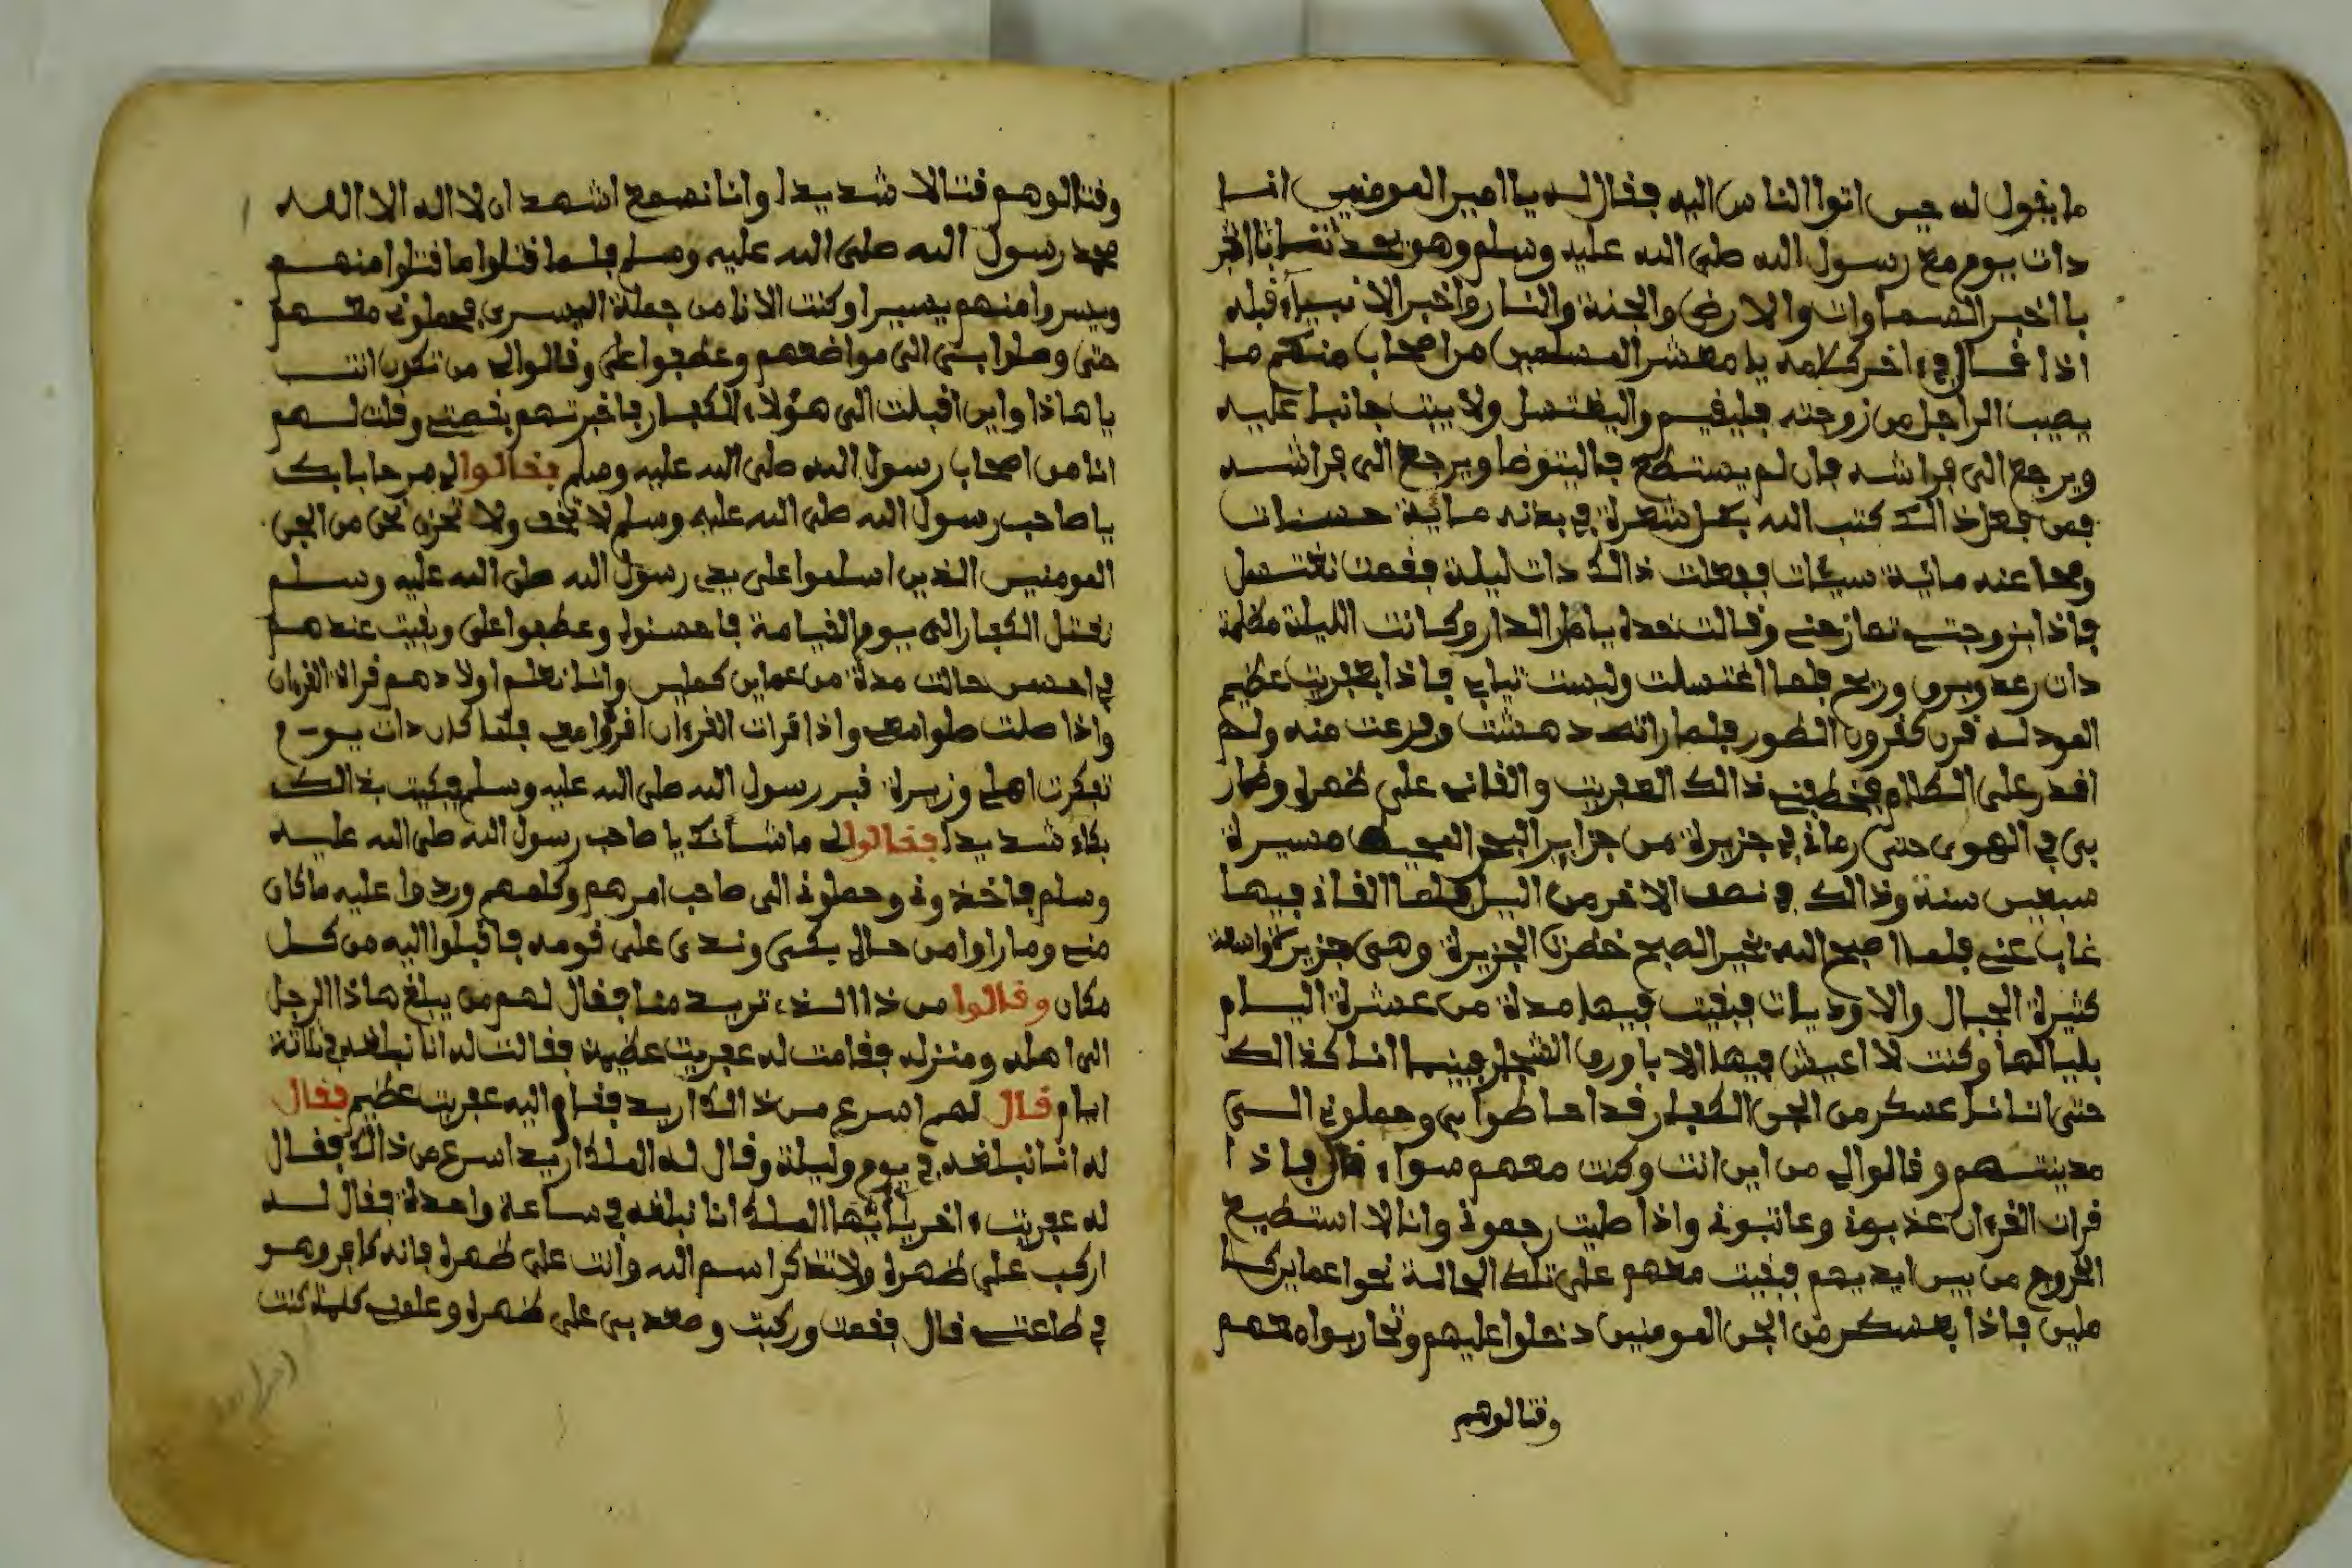 ما يقول له حين اتوا الناس اليه فقال له يا امير المومنين انا
دات يوم مع رسول الله صلى الله عليه وسلم وهو يحدثنا
با اخبر السماوات والارض والجنة والنار واخبر الانبياء قبله
اذا قال في ءاخر كلامه يا معشر المسلمين من اصحاب منكم ما
يصيب الراجل من زوجته فليقيم واليغتسل ولا يبت جانبا عليه
ويرجع الى فراشه فان لم يستطع فاليتوضا ويرجع الى فراشه
فمن فعل ذالك كتب الله بكل شعرة في بدنه ماية حسنات
ومحا عنه ماية سيئات ففعلت ذالك دات ليلة فقمت نغتسل
فاذا بزوجتي تمازحني وقالت خده يا طر الدار وكانت الليلة مظلمة
دات رعد وبرق وريح فلما اغتسلت ولبست ثيابي فاذا بعفريت عظيم
العود له قرن كقرون الطور فلما راته دهشت وفزعت منه ولم
اقدر على الكلام فخطفني ذالك العفريت والقاني على ظهره وطار
بي في الهوى حتى رماني في جزيرة من جزاير البحر المحيط مسيرة
سبعين سنة وذالك في نصف الاخر من اليل فلما القاني فيها
غاب عني فلما اصبح الله بخير الصبح خضرت الجزيرة وهي جزيرة واسعة
كثيرة الجبال والاوديات فبقيت فيها مدة من عشرة اليام
بليالها وكنت لا اعيش فيها الا باورق الشجار فبينما انا كذالك
حتى اتانا عسكر من الجن الكفار قد احاطوا بي وحملوني الى
مدينتهم وقالوا لي من اين انت وكنت معهم سواء قال فاذا
قرات القرءان عذبوني وعاتبوني واذا صليت رجموني وانا لا استطيع
الخروج من بين ايديهم فبقيت معهم على تلك الحالة نحوا عماين كا
ملين فاذا بعسكر من الجن المومنين دخلوا عليهم وتحاربوا معهم
وقتالوهم
وقتالوهم قتالا شديدا وانا نسمع اشهد ان لا اله الا الله
محمد رسول الله صلى الله عليه وسلم فلما قتلوا ما قتلوا منهم
ويسروا منهم يسيرا وكنت الانا من جملة اليسرى فحملوني معهم
حتى وصلوا بي الى مواضعهم وعطفوا علي وقالوا لي من تكون انت
يا هاذا واين اقبلت الى هؤلاء الكفار فاخبرتهم بقصتي وقلت لهم
انا من اصحاب رسول الله صلى الله عليه وسلم فقالوا لي مرحابا بك
يا صاحب رسول الله صلى الله عليه وسلم لا تخف ولا تحزن نحن من الجن
المومنين الذين اسلموا على يدي رسول الله صلى الله عليه وسلم
نقتل الكفار الى يوم القيامة فاحسنوا وعطفوا علي وبقيت عندهم
في احسن حالت مدة من عماين كملين وانا نعلم اولادهم قراة القرءان
واذا صلت صلوا معي واذا قرات القرءان اقرؤا معي فلما كان دات يوم
تفكرت اهلي وزيرة قبر رسول الله صلى الله عليه وسلم فبكيت بذالك
بكاء شديدا فقالوا لي ما شأنك يا صاحب رسول الله صلى الله عليه
وسلم فاخذوني وحملوني الى صاحب امرهم وكلمهم وردوا عليه ما كان
مني وما راوا من حالي بكى وندى على قومه فاقبلوا اليه من كل
مكان وقالوا من ذا الذي تريد منا فقال لهم من يبلغ هاذا الرجل
الى اهله ومنزله فقامت له عفريت عظيمة فقالت له انا نبلغه في ثلاثة
ايام قال لهم اسرع من ذالك اريد فقام اليه عفريت عظيم فقال
له انا نبلغه في يوم وليلة وقال له الملك اريد اسرع من ذالك فقال
له عفريت ءاخر يا ايها الملك انا نبلغه في ساعة واحدة فقال له
اركب على ظهره ولا تذكر اسم الله وانت على ظهره فانه كافر وهو
في طاعتي قال فقمت وركبت وصعد بي على ظهره وعلمني كلمة كنت